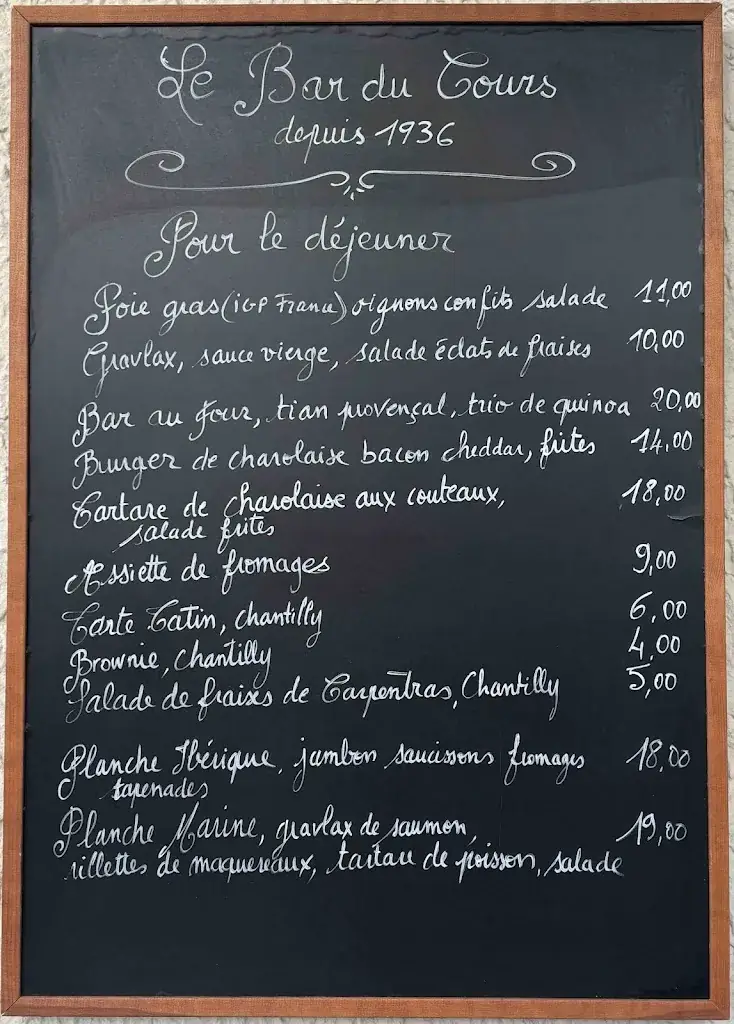 Le Bar du Cours
depuis 1936
Pour le déjeuner
Foie gras (IGP France) oignons confits salade 11,00
Gravlax, sauce vierge, salade éclats de fraises 10,00
Bar au four, tian provençal, trio de quinoa 20,00
Burger de charolaise bacon cheddar, frites 14,00
Tartare de charolaise aux couteaux, 18,00
salade frites
Assiette de fromages 9,00
Tarte Tatin, chantilly 6,00
Brownie, chantilly 4,00
Salade de fraises de Carpentras, Chantilly 5,00
Planche Ibérique, jambon saucissons fromages 18,00
tapenades
Planche Marine, gravlax de saumon, 19,00
rillettes de maquereaux, tartare de poisson, salade